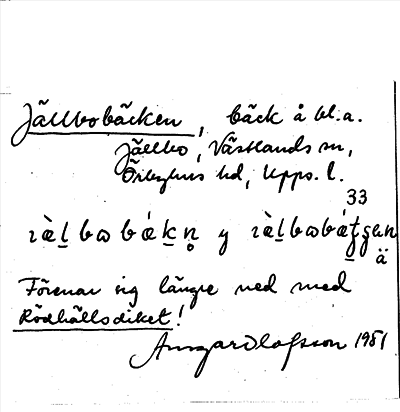 Jällbobäcken, bäck å bl.a.
Jällbo, Västlands sn,
Örbyhus hd, Upps. l.
33
ä
Förenar sig längre ned med
Rödhällsdiket!
Ansgar Olofsson 1981